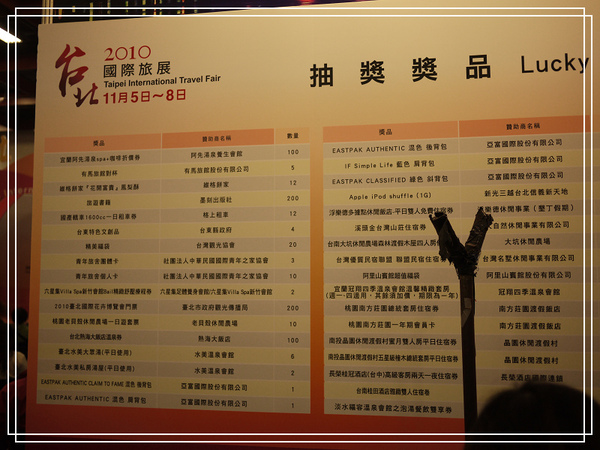 台北
2010
國際旅展
Taipei International Travel Fair
11月5日～8日
抽獎獎品 Lucky
獎品 贊助商名稱 數量
宜蘭阿先湯泉spa+咖啡折價券 阿先湯泉養生會館 100
有馬旅館對杯 有馬旅館股份有限公司 5
維格餅家「花開富貴」鳳梨酥 維格餅家 12
旅遊書籍 墨刻出版社 200
國產轎車1600cc一日租車券 格上租車 12
台東特色文創品 台東縣政府 4
精美福袋 台灣觀光協會 20
青年旅舍團體卡 社團法人中華民國國際青年之家協會 3
青年旅舍個人卡 社團法人中華民國國際青年之家協會 10
六星集Villa Spa新竹會館Bali精緻舒壓療程券 六星集足體養身會館/六星集Villa Spa新竹會館 2
2010臺北國際花卉博覽會門票 臺北市政府觀光傳播局 200
桃園老貝殼休閒農場一日遊套票 老貝殼休閒農場 10
台北熱海大飯店溫泉券 熱海大飯店 100
臺北水美大眾湯(平日使用) 水美溫泉會館 6
臺北水美私房湯屋(平日使用) 水美溫泉會館 2
EASTPAK AUTHENTIC CLAIM TO FAME 混色 後背包 亞富國際股份有限公司 1
EASTPAK AUTHENTIC 混色 肩背包 亞富國際股份有限公司 1
獎品 贊助商名稱
EASTPAK AUTHENTIC 混色 後背包 亞富國際股份有限公司
IF Simple Life 藍色 肩背包 亞富國際股份有限公司
EASTPAK CLASSIFIED 綠色 斜背包 亞富國際股份有限公司
Apple iPod shuffle (1G) 新光三越台北信義新天地
浮樂德多據點休閒飯店-平日雙人免費住宿券 樂德休閒事業（墾丁假期）
溪頭金台灣山莊住宿券 大自然休閒事業有限公司
台南大坑休閒農場森林渡假木屋四人房 大坑休閒農場
台灣優質民宿聯盟 聯盟民宿住宿券 台灣名墅休閒事業有限公司
阿里山賓館超值福袋 阿里山賓館股份有限公司
宜蘭冠翔四季溫泉會館溫馨精緻套房
(週一-四適用，其餘須加價，期限為一年) 冠翔四季溫泉會館
桃園南方莊園總統套房住宿券 南方莊園渡假飯店
桃園南方莊園一年期會員卡 南方莊園渡假飯店
南投晶園休閒渡假村蜜月雙人房平日住宿券 晶園休閒渡假村
南投晶園休閒渡假村五星級檜木總統套房平日住宿券 晶園休閒渡假村
長榮桂冠酒店(台中)高級客房兩天一夜住宿券 長榮酒店國際連鎖
台南桂田酒店雅緻雙人住宿券
涼水福容溫泉會館之泡湯餐飲雙享券